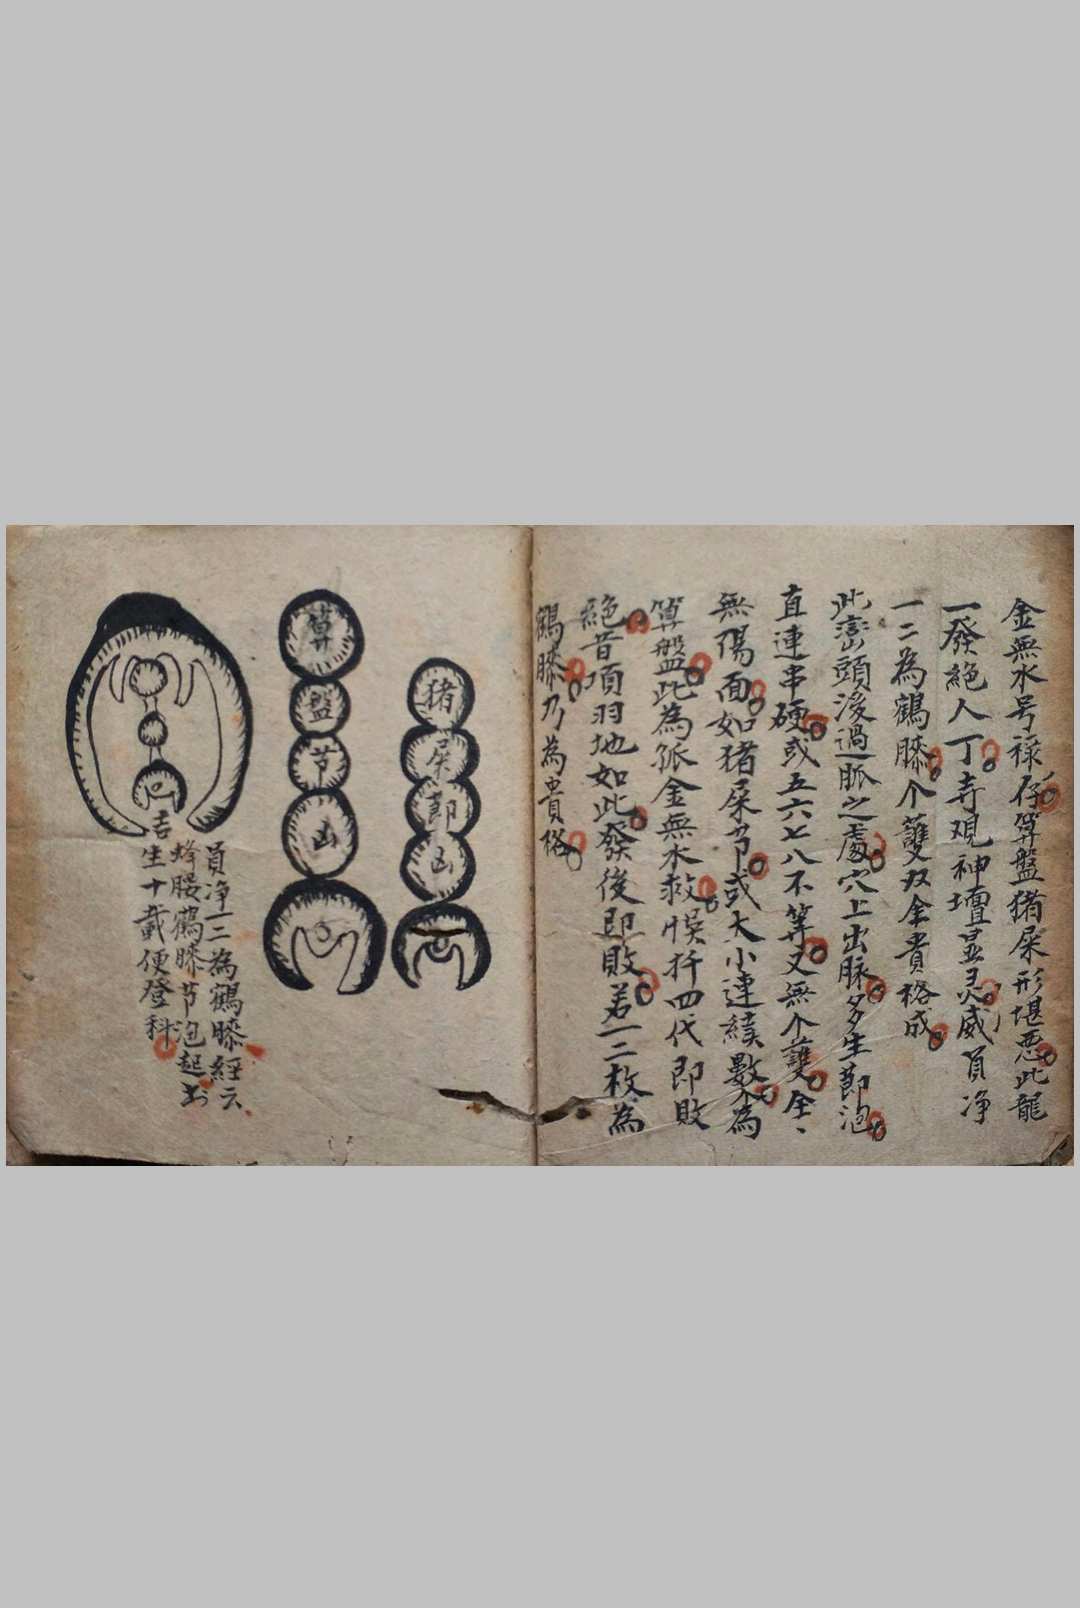 金無水号禄存算盤猪屎形堪悪此龍
一發絕人丁寺观神壇显灵威員净
一二為鶴膝个䕶双全貴格成
此嵛頭後過脈之處穴上出脉多生節泡
直連串硬或五六七八不等又無个䕶全
無陽面如猪屎节或大小連續數為
算盤此為孤金無水救悞扦四代即敗
絕昔項羽地如此發後即敗若一二枚為
鶴膝乃為貴格
猪屎節凶
算盤节凶
吉
員净一二為鶴膝經云
蜂腰鶴膝节泡起出
生十載便登科